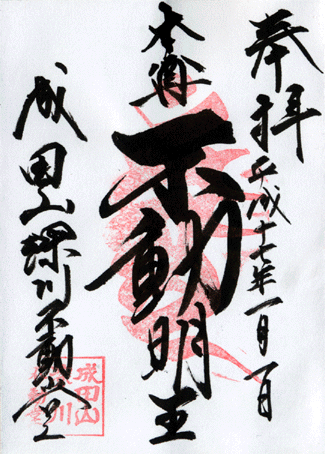 奉拝 平成十七年一月一日
本尊
不動明王
成田山深川不動堂
成田山